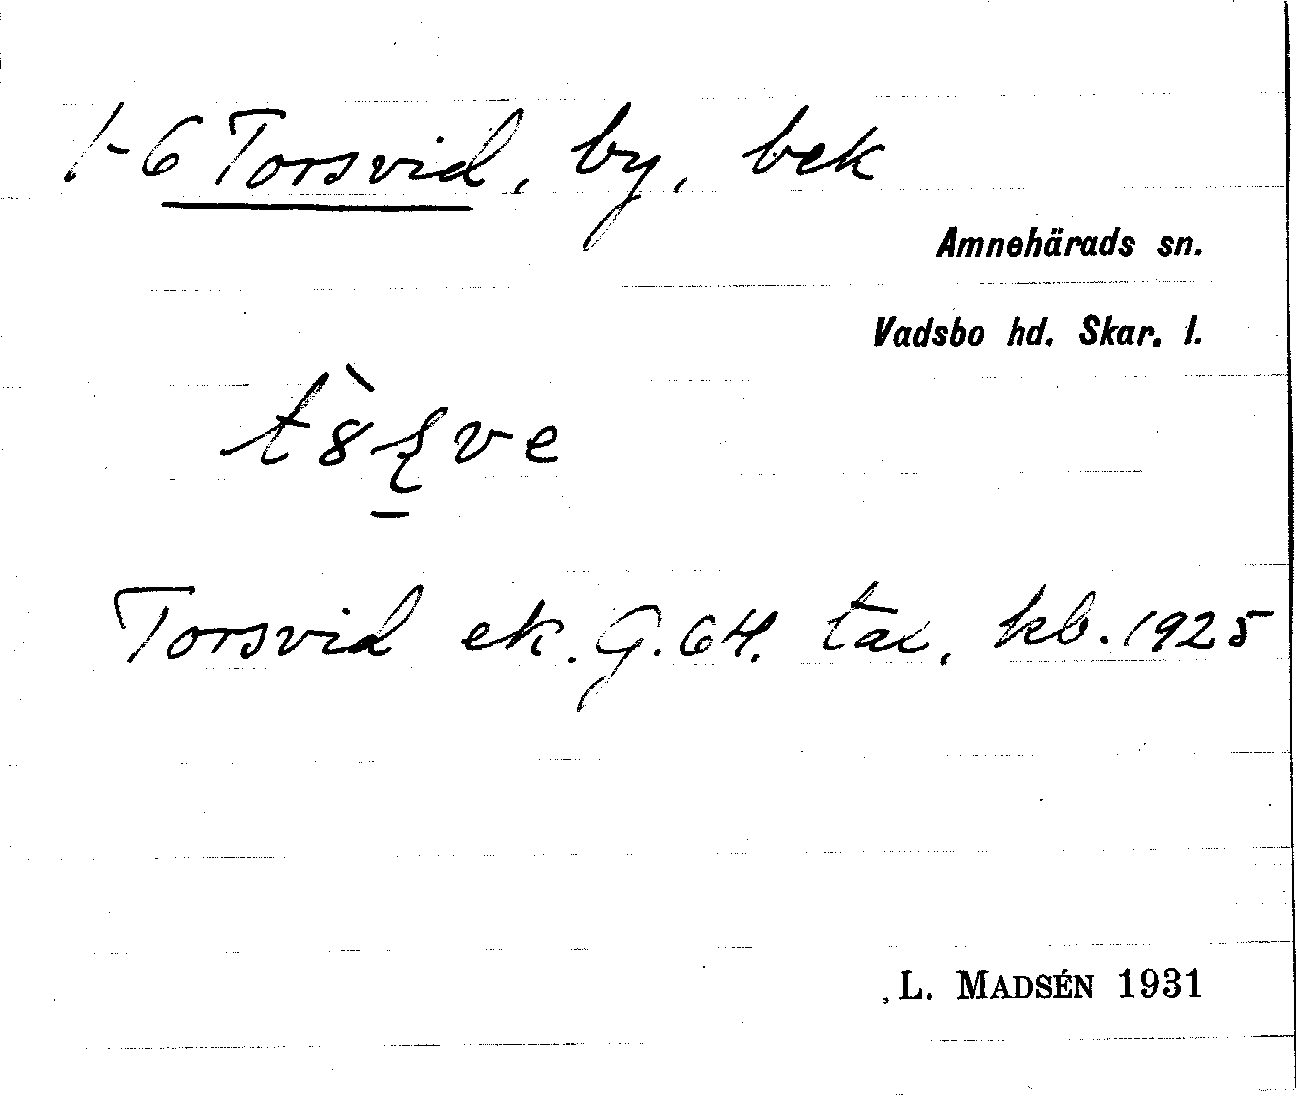 1-6 Torsvid, by, bek
Amnehärads sn.
Vadsbo hd. Skar. l.
Torsvid ek. G. 64. tax, kb. 1925
L. MADSÉN 1931